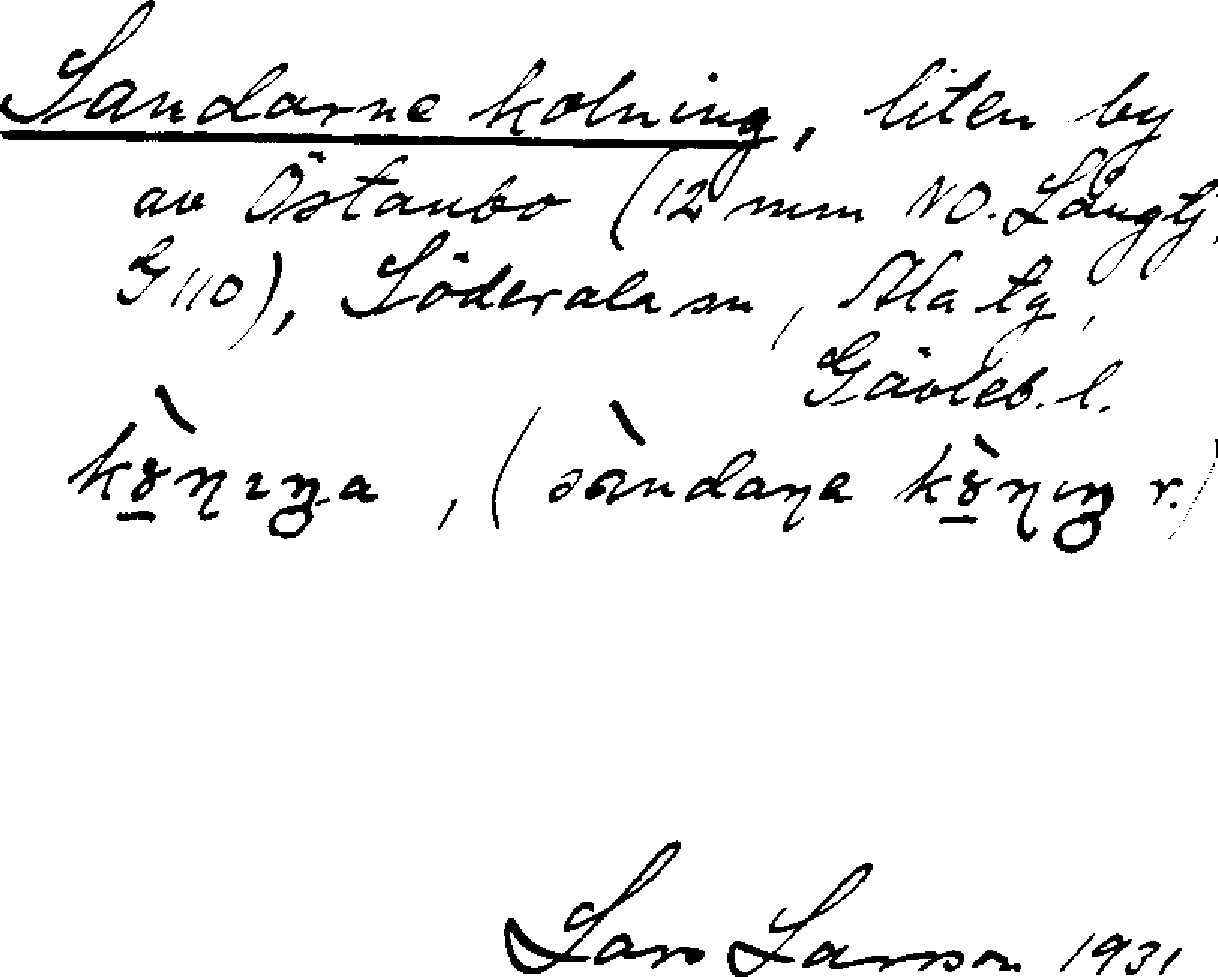 Sandarne kolning, liten by
av Östanbo (12 mm NO. Långtj.
G 110), Söderala sn, Ala tg,
Gävleb. l.
(sàndaɳa r.)
Lars Larsson 1931